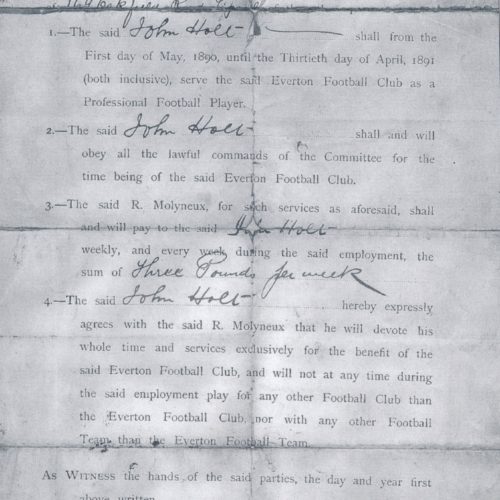 1.—The said John Holt shall from the
First day of May, 1890, until the Thirtieth day of April, 1891
(both inclusive), serve the said Everton Football Club as a
Professional Football Player.
2.—The said John Holt shall and will
obey all the lawful commands of the Committee for the
time being of the said Everton Football Club.
3.—The said R. Molyneux, for such services as aforesaid, shall
and will pay to the said John Holt
weekly, and every week during the said employment, the
sum of Three Pounds per week
4.—The said John Holt hereby expressly
agrees with the said R. Molyneux that he will devote his
whole time and services exclusively for the benefit of the
said Everton Football Club, and will not at any time during
the said employment play for any other Football Club than
the Everton Football Club, nor with any other Football
Team than the Everton Football Team.
As Witness the hands of the said parties, the day and year first
above written.